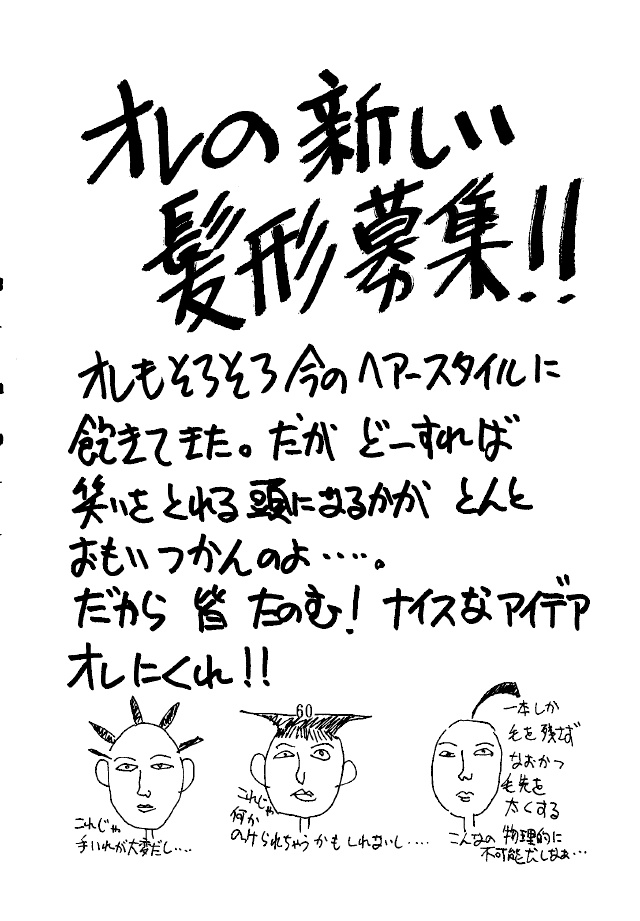 オレの新しい
髪形募集!!
オレもそろそろ今のヘアースタイルに
飽きてきた。だが どーすれば
笑いをとれる頭になるかが とんと
おもいつかんのよ・・・・。
だから 皆 たのむ! ナイスなアイデア
オレにくれ!!
これじゃ
手いれが大変だし・・・・
60
これじゃ
何か
のけられちゃうかもしれないし・・・・
一本しか
毛を残さず
なおかつ
毛先を
太くする
こんなの物理的に
不可能だしなぁ・・・